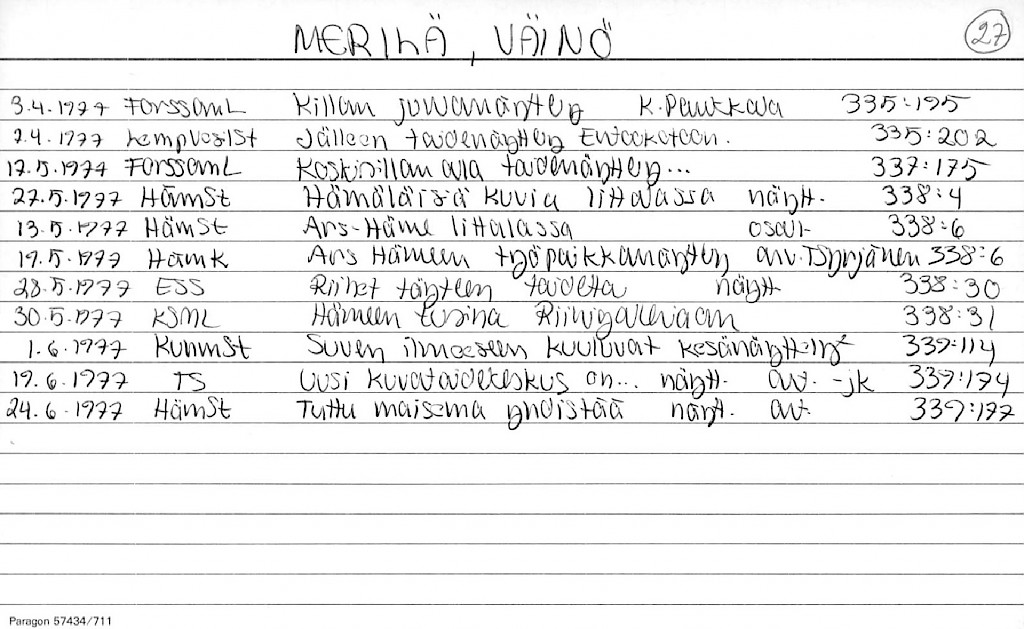 MERILÄ, VÄINÖ 27
3.4.1977 ForssamL Killan juuanäyttely K. Paukkala 335:195
7.4.1977 LempVesilSt Jälleen taidenäyttely 335:202
17.5.1977 ForssamL Koskisillan alla taidenäyttely... 337:175
27.5.1977 HämSt Hämäläisiä kuvia Iittalassa näytt. 338:4
13.5.1977 HämSt Ars-Häme Iittalassa osall. 338:6
19.5.1977 HämK Ars Hämeen työpaikkanäyttely arv. TSyrjänen 338:6
28.5.1977 ESS Riihet täyteen taidetta näytt 338:30
30.5.1977 KSML Hämeen tusina Riihigalleriaan 338:31
1.6.1977 KunnSt Suven ilmeeseen kuuluvat kesänäyttelyt 339:114
19.6.1977 TS Uusi kuvataidekeskus on... näytt. art. -jk 339:174
24.6.1977 HämSt Tuttu maisema yhdistää näytt. art. 339:177
Paragon 57434/711